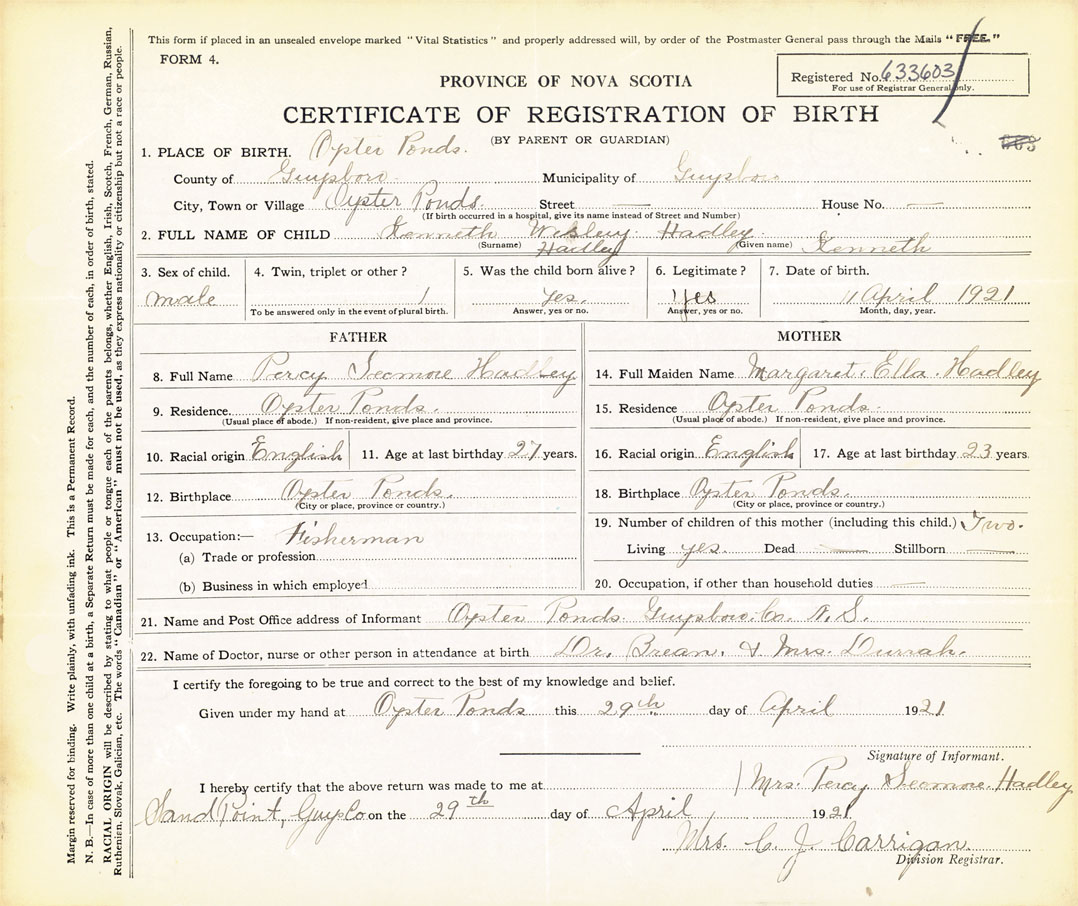 This form if placed in an unsealed envelope marked "Vital Statistics" and properly addressed will, by order of the Postmaster General pass through the Mails "FREE."
FORM 4.
Registered No. 633603
For use of Registrar General only.
PROVINCE OF NOVA SCOTIA
CERTIFICATE OF REGISTRATION OF BIRTH
(BY PARENT OR GUARDIAN)
1. PLACE OF BIRTH. Oyster Ponds.
County of Guysboro Municipality of Guysboro
City, Town or Village Oyster Ponds. Street — House No. —
(If birth occurred in a hospital, give its name instead of Street and Number)
2. FULL NAME OF CHILD Kenneth Wesley Hadley.
(Surname) Hadley (Given name) Kenneth
3. Sex of child. 4. Twin, triplet or other? 5. Was the child born alive? 6. Legitimate? 7. Date of birth.
male 1 Yes. Yes 11 April 1921
To be answered only in the event of plural birth. Answer, yes or no. Answer, yes or no. Month, day, year.
FATHER
8. Full Name Percy Seemore Hadley
9. Residence. Oyster Ponds.
(Usual place of abode.) If non-resident, give place and province.
10. Racial origin English 11. Age at last birthday 27 years.
12. Birthplace Oyster Ponds.
(City or place, province or country.)
13. Occupation:— Fisherman
(a) Trade or profession
(b) Business in which employed
MOTHER
14. Full Maiden Name Margaret. Ella. Hadley
15. Residence Oyster Ponds.
(Usual place of abode.) If non-resident, give place and province.
16. Racial origin English 17. Age at last birthday 23 years.
18. Birthplace Oyster Ponds.
(City or place, province or country.)
19. Number of children of this mother (including this child.) Two.
Living yes. Dead — Stillborn —
20. Occupation, if other than household duties —
21. Name and Post Office address of Informant Oyster Ponds. Guysboro. Co. N. S.
22. Name of Doctor, nurse or other person in attendance at birth Dr. & Mrs.
I certify the foregoing to be true and correct to the best of my knowledge and belief.
Given under my hand at Oyster Ponds this 29th day of April 1921
Signature of Informant.
Mrs. Percy Seemore Hadley
I hereby certify that the above return was made to me at
Sand Point, Guys Co on the 29th day of April 1921
Mrs. C. J. Carrigan.
Division Registrar.
Margin reserved for binding. Write plainly, with unfading ink. This is a Permanent Record.
N. B.—In case of more than one child at a birth, a Separate Return must be made for each, and the number of each, in order of birth, stated.
RACIAL ORIGIN will be described by stating to what people or tongue each of the parents belongs, whether English, Irish, Scotch, French, German, Russian,
Ruthenian, Slovak, Galician, etc. The words "Canadian" or "American" must not be used, as they express nationality or citizenship but not a race or people.